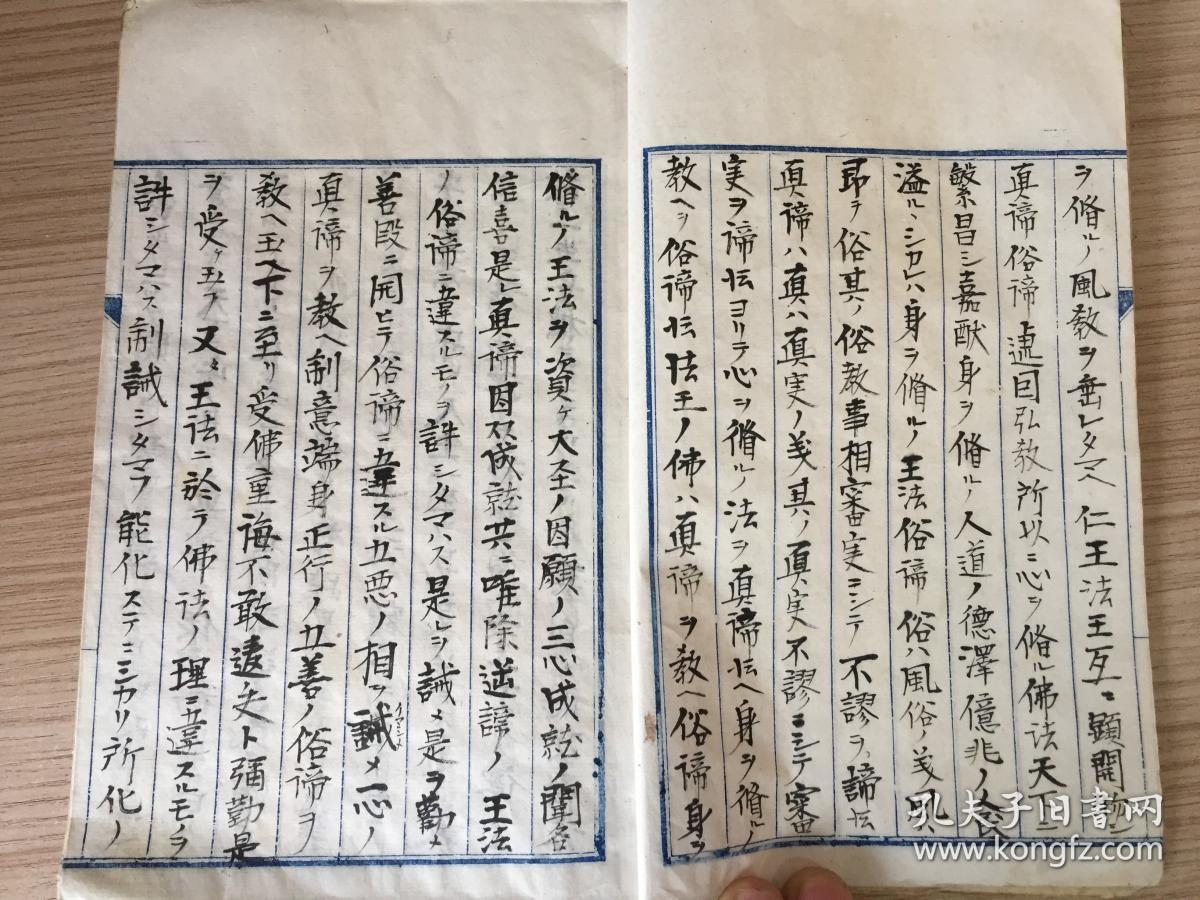 ヲ脩ルノ風教ヲ垂レタマヘ仁王法王互ニ顕開
真諦俗諦逓因弘教所以ニ心ヲ脩ル佛法天下ニ
繁昌シ嘉猷身ヲ脩ルノ人道ノ德澤億兆ノ
溢ル、シカレハ身ヲ脩ルノ王法俗諦俗ハ風俗ノ義
即チ俗其ノ俗教事相審実ニシテ不謬ヲ諦ト云
真諦ハ真ハ真実ノ義其ノ真実不謬ニシテ審
実ヲ諦ト云ヨリテ心ヲ脩ルノ法ヲ真諦ト云ヘ身ヲ脩ルノ
教ヘヲ俗諦ト云法王ノ佛ハ真諦ヲ教ヘ俗諦身ヲ
脩ルノ王法ヲ資ケ大圣ノ因願ノ三心成就ノ聞名
信喜是レ真諦因双成就共ニ唯除逆謗ノ王法
ノ俗諦ニ違スルモノヲ誅シタマハス是レヲ誡メ是ヲ勸メ
善段ニ開ヒテ俗諦ニ違スル五悪ノ相ヲ誡メ一心ノ
イマシメ
真諦ヲ教ヘ制意端身正行ノ五善ノ俗諦ヲ
教ヘ玉ヘ下ニ至リ受佛重誨不敢違失ト彌勤是
ヲ受ケ玉フ又々王法ニ於ラ佛法ノ理ニ違スルモノヲ
誅シタマハス制誡シタマフ能化ステニシカリ所化ノ
孔夫子旧书网
www.kongfz.com